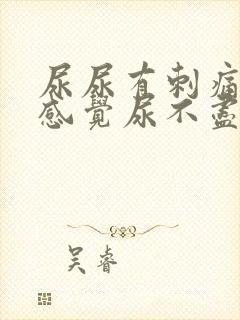 尿尿有刺痛
感覺尿不盡
吴睿